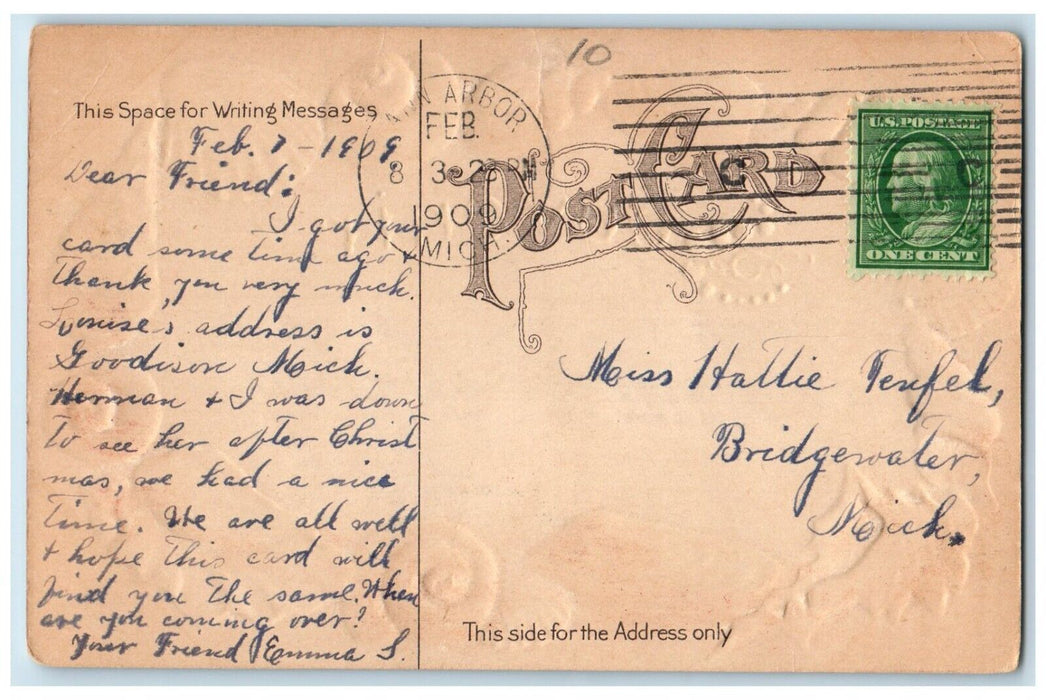 10
This Space for Writing Messages
Feb. 7 - 1909
Dear Friend:
I got your
card some time ago +
Thank you very much.
Louise's address is
Goodison Mich.
Herman + I was down
to see her after Christ
mas, we had a nice
Time. We are all well
+ hope This card will
find you The same. When
are you coming over?
Your Friend Emma S.
ANN ARBOR
FEB.
8 3
1909
MICH.
POST CARD
U.S. POSTAGE
ONE CENT
Miss Hattie Teufel,
Bridgewater,
Mich.
This side for the Address only